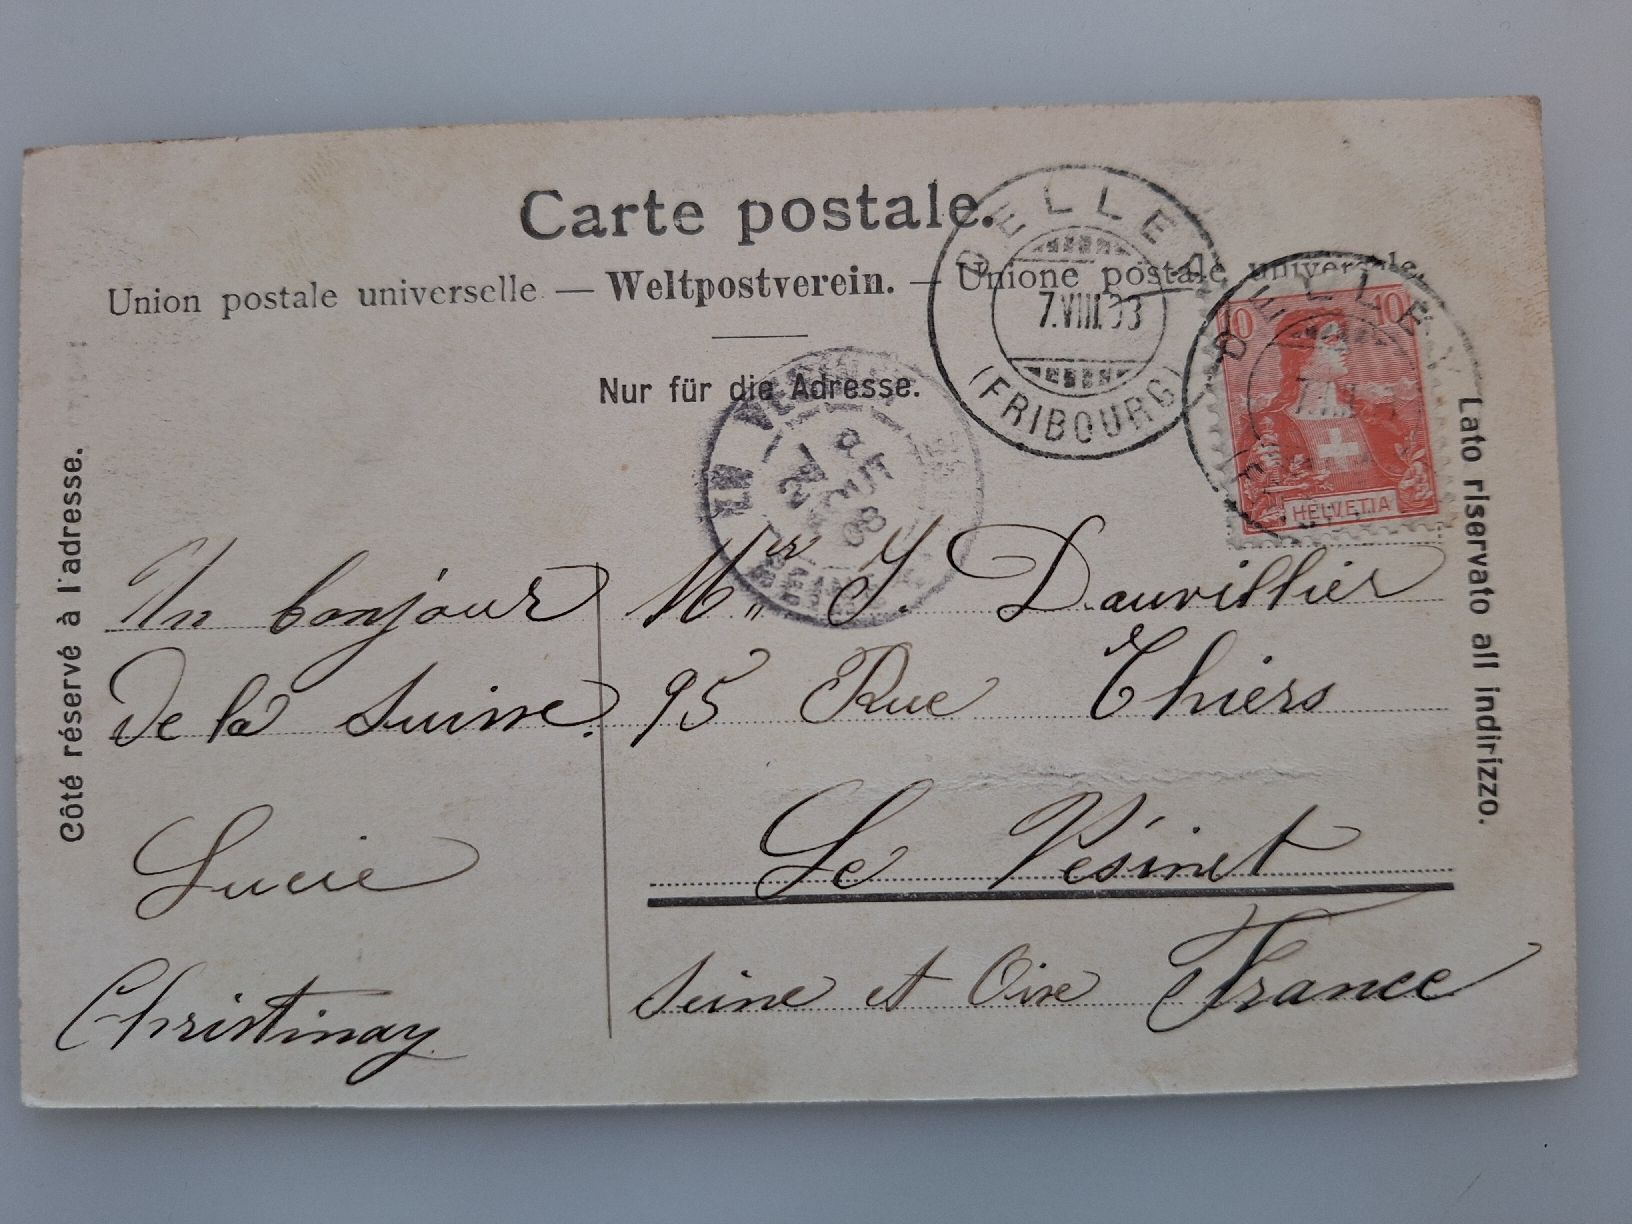 Carte postale.
Union postale universelle — Weltpostverein. — Unione postale universale.
Nur für die Adresse.
Côté réservé à l'adresse.
Lato riservato all indirizzo.
BELLEY
7.VIII.
(FRIBOURG)
10 10
HELVETIA
BELLEY
8
AOUT
08
Un bonjour
de la Suisse.
Lucie
Christinay
Mr J. Dauvillier
95 Rue Thiers
Le Vésinet
Seine et Oise France